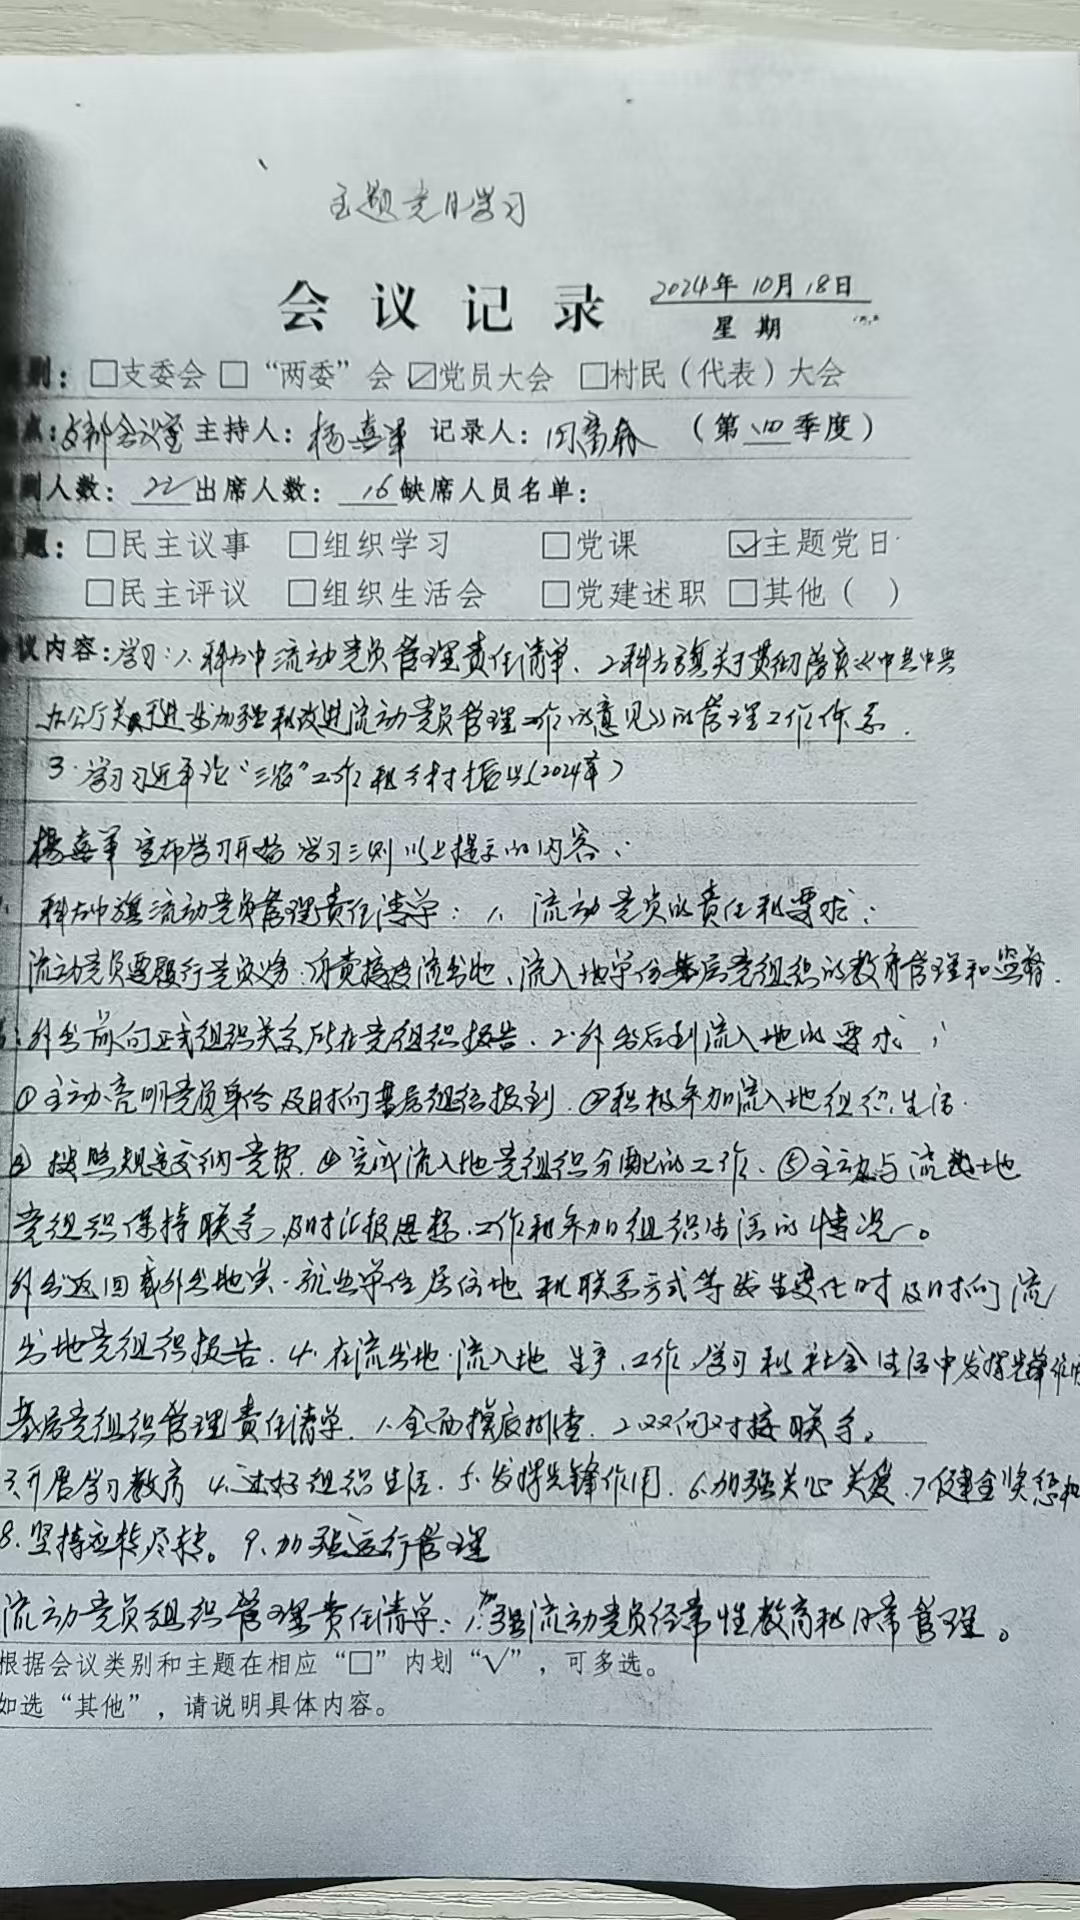 主题党日学习
会议记录 2024年10月18日
星期
别：□支委会 □“两委”会 ☑党员大会 □村民（代表）大会
点：支部会议室 主持人：杨喜军 记录人： （第四季度）
到人数：22 出席人数：16 缺席人员名单：
题：□民主议事 □组织学习 □党课 ☑主题党日
□民主评议 □组织生活会 □党建述职 □其他（ ）
议内容：学习：1、科右中流动党员管理责任清单、2科右旗关于贯彻落实《中共中央
办公厅关于进步加强和改进流动党员管理工作的意见》的管理工作体系.
3.学习习近平论“三农”工作和乡村振兴(2024年)
杨喜军宣布学习开始 学习三则以上提示的内容：
科右中旗流动党员管理责任清单：1、流动党员的责任和要求：
流动党员要履行党员义务.负责接受流出地、流入地单位基层党组织的教育管理和监督.
外出前向正式组织关系所在党组织报告、2.外出后到流入地的要求；
①主动亮明党员身份及时向基层组织报到.②积极参加流入地组织生活.
③按照规定交纳党费.④完成流入地党组织分配的工作、⑤主动与流出地
党组织保持联系,及时汇报思想.工作和参加组织生活的情况。
外出返回或外出地点.就业单位居住地和联系方式等发生变化时及时向流
出地党组织报告.4.在流出地.流入地 生产、工作、学习和社会生活中发挥先锋作用
基层党组织管理责任清单.1.全面摸底排查.2双向对接联系。
3.开展学习教育 4.过好组织生活.5.发挥先锋作用.6.加强关心关爱.7健全奖惩机
8.坚持应转尽转。9.加强运行管理
流动党员组织管理责任清单：1.加强流动党员经常性教育和日常管理。
根据会议类别和主题在相应“□”内划“√”，可多选。
如选“其他”，请说明具体内容。